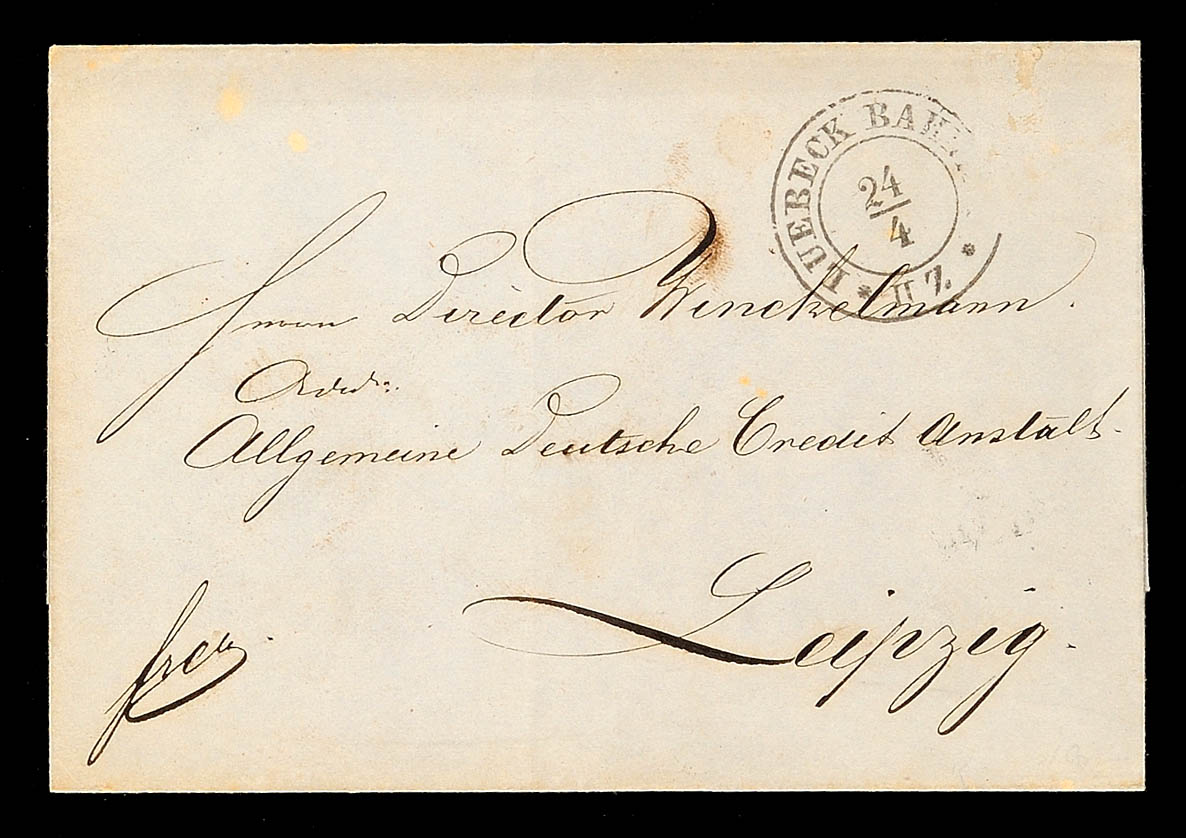 LUEBECK BAH
24
4
* II Z. *
Director Winckelmann.
Allgemeine Deutsche Credit Anstalt.
Leipzig.